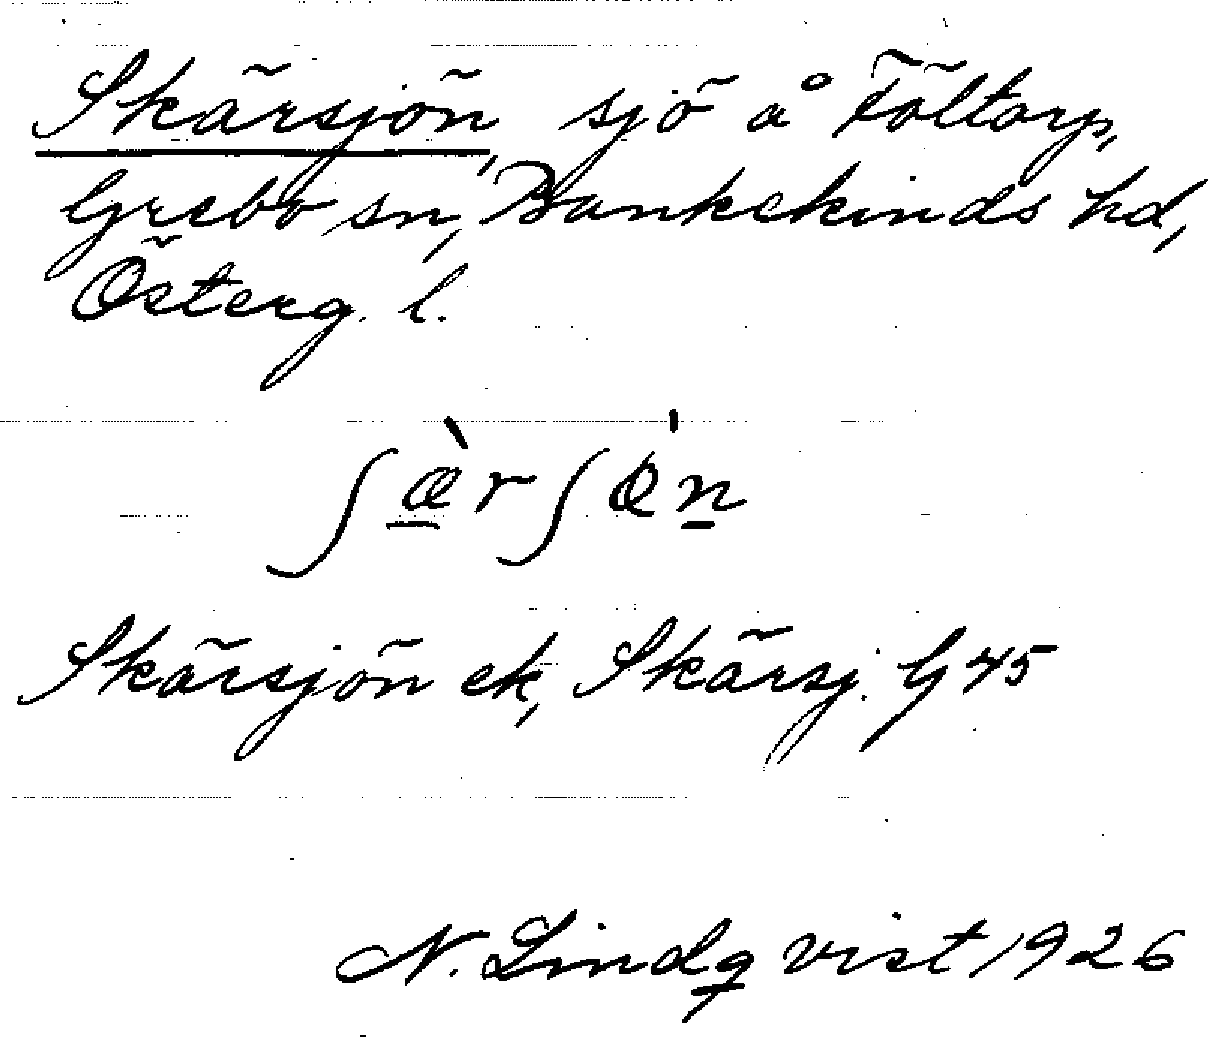 Skärsjön, sjö å Föltorp,
Grebo sn, Bankekinds hd,
Österg. l.
ʃæ̠̀rʃøn̠̍
Skärsjön ek, Skärsj. G 45
N. Lindqvist 1926